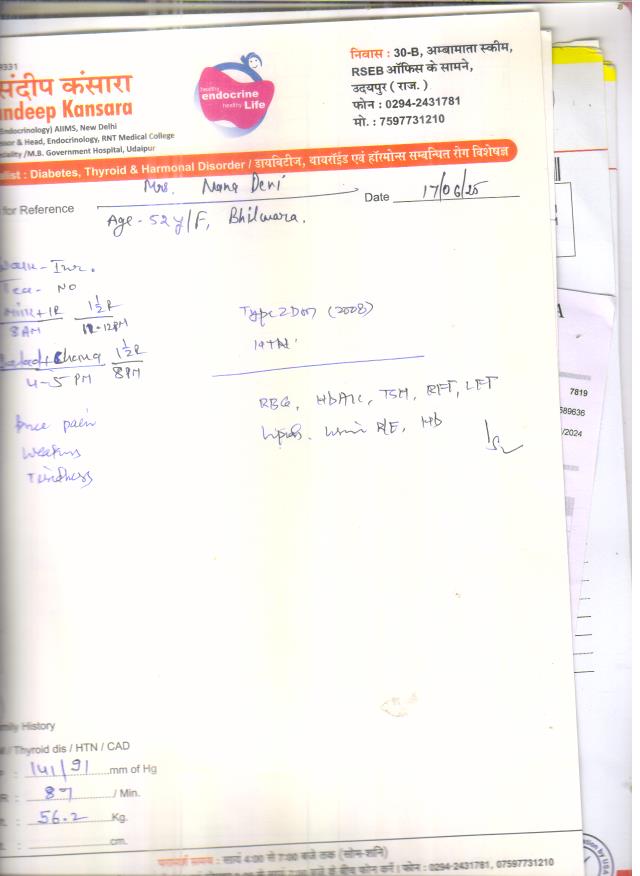 9331
संदीप कंसारा
ndeep Kansara
Endocrinology) AIIMS, New Delhi
ssor & Head, Endocrinology, RNT Medical College
eciality /M.B. Government Hospital, Udaipur
healthy
endocrine
healthy Life
निवास : 30-B, अम्बामाता स्कीम,
RSEB ऑफिस के सामने,
उदयपुर ( राज. )
फोन : 0294-2431781
मो. : 7597731210
alist : Diabetes, Thyroid & Harmonal Disorder / डायबिटीज, थायरॉईड एवं हॉरमोन्स सम्बन्धित रोग विशेषज्ञ
for Reference Mrs. Nana Devi Date 17/06/25
Age - 52 y/F, Bhilwara.
Tea - NO
Milk + 1R 1½R
8AM 12PM
1½R
4-5 PM 8PM
Type 2 DM (2008)
HTN
RBG, HbA1c, TSH, RFT, LFT
Lipids. Urine R/E, Hb
knee pain
weakness
Tiredness
7819
589636
/2024
mily History
/ Thyroid dis / HTN / CAD
: 141/91 mm of Hg
R : 87 / Min.
: 56.2 Kg.
: cm.
परामर्श समय : सायं 4:00 से 7:00 बजे तक (सोम-शनि)
बजे के बीच फोन करें। फोन : 0294-2431781, 07597731210